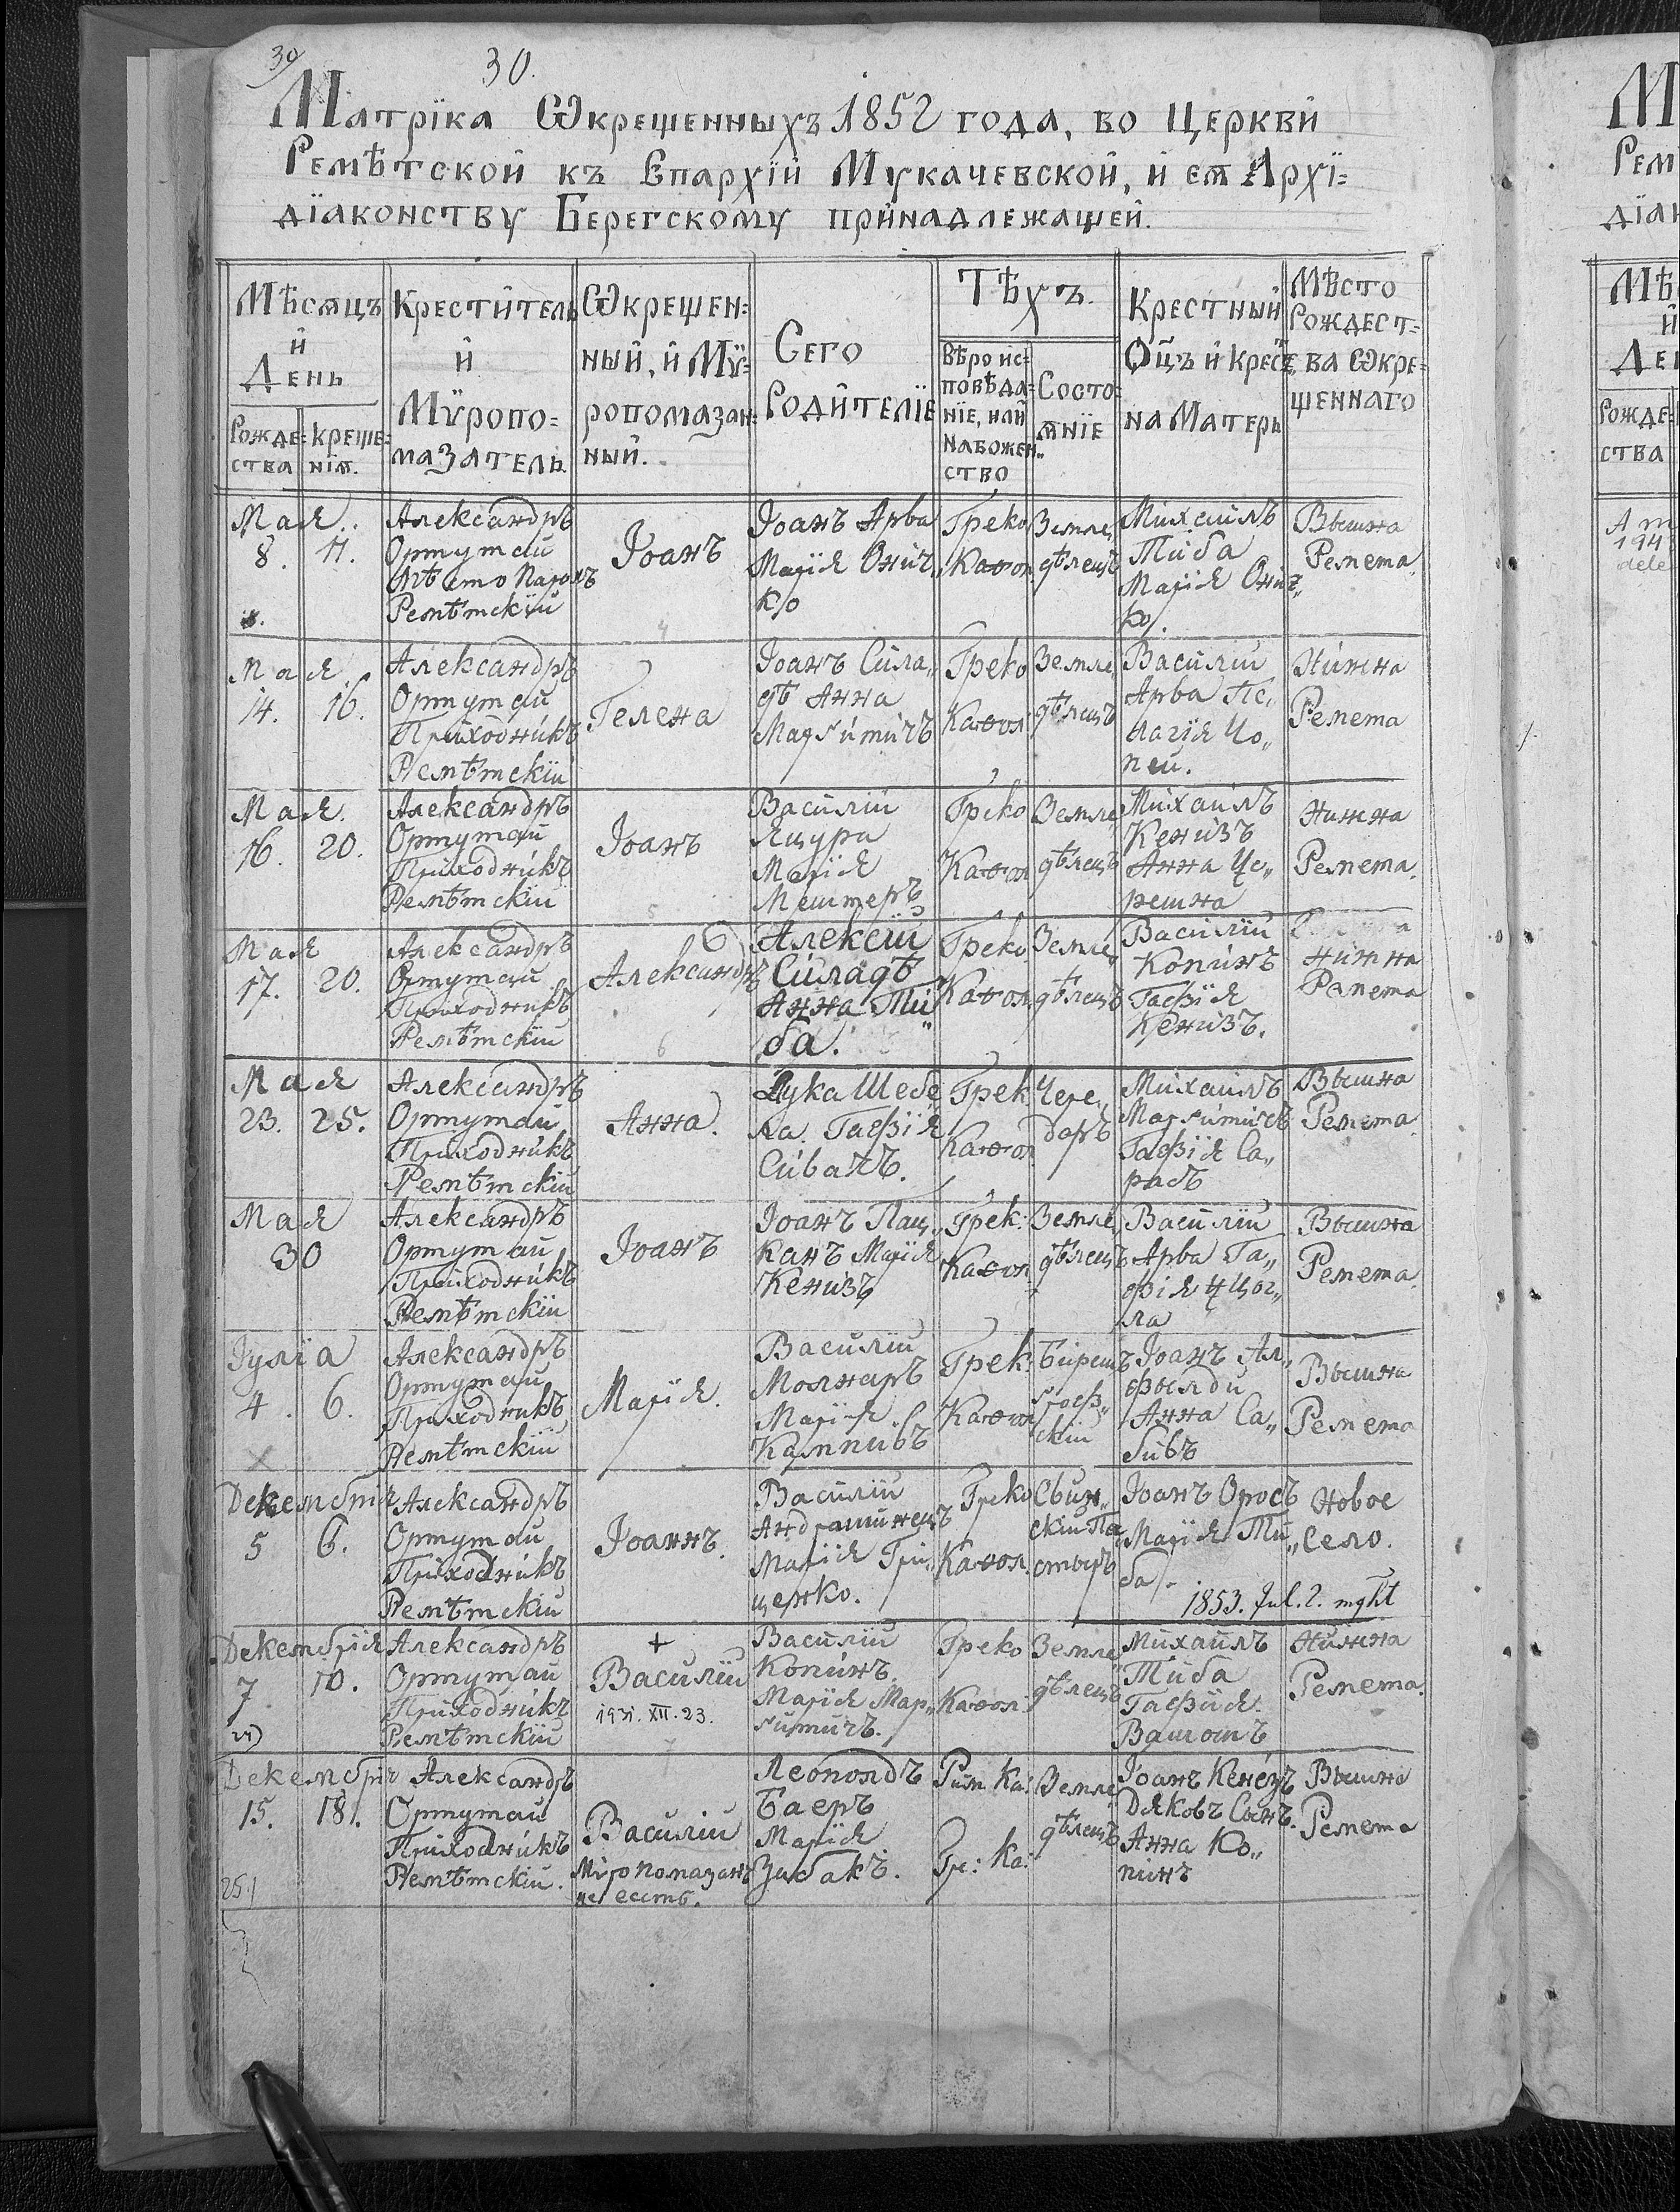 39
30.
Матрїка Ѡкрешенныхъ 1852 года, во Церкви
Ремѣтской къ Епархїи Мукачевской, и еѧ Архї=
дїаконству Берегскому принадлежащей.
Мѣсѧцъ
и
День
Рожде=
ства
Креще=
нїѧ.
Креститель
и
Мѵропо=
мазатель
Ѡкрешен=
ный, и Мѵ=
ропомазан=
ный.
Сего
Родителїе
Тѣхъ.
Вѣроис=
повѣда=
нїе, или
набожен„
ство
Состо=
ѧнїе
Крестный
Оцъ и Крест
на Матерь
Мѣсто
Рождест=
ва Ѡкре=
щеннаго
Мая
8. 11.
Александръ
Ортутай
Мѣсто Парохъ
Ремѣтскїй
Іоанъ
Іоанъ Арва
Марїя Онич„
ко
Греко
Каѳол
Земле
дѣлецъ
Михаилъ
Тиба
Марїя Онич„
ко.
Вышна
Ремета.
4
Мая.
14. 16.
Александръ
Ортутай
Приходникъ
Ремѣтскїй
Гелена
Іоанъ Сила„
дѣ Анна
Маргитичъ
Греко
Каѳол
Земле
дѣлецъ
Василїй
Арва Пе„
лагїя Чо„
пей.
Нижна
Ремета
Мая.
16. 20.
Александръ
Ортутай
Приходникъ
Ремѣтскїй
Іоанъ
Василїй
Яцура
Марїя
Мештеръ
Греко
Каѳол
Земле
дѣлецъ
Михаилъ
Кенизъ
Анна Че„
решна
Нижна
Ремета.
5
Мая
17. 20.
Александръ
Ортутай
Приходникъ
Ремѣтскїй
Александръ
Алексїй
Силадѣ
Анна Ти„
ба.
Греко
Каѳол
Земле„
дѣлецъ
Василїй
Копинъ
Гафїя
Кенизъ.
Нижна
Ремета
6
Мая
23. 25.
Александръ
Ортутай
Приходникъ
Ремѣтскїй
Анна.
Лука Шебе
ла. Гафїя
Сивакъ.
Грек
Каѳол
Чере„
даръ
Михаилъ
Маргитичъ
Гафїя Са„
рабъ
Вышна
Ремета
Мая
30
Александръ
Ортутай
Приходникъ
Ремѣтскїй
Іоанъ
Іоанъ Пац„
канъ Марїя
Кенизъ
Грек:
Каѳол
Земле
дѣлецъ
Василїй
Арва Га„
фія
ла
Вышна
Ремета.
Іулїа
4. 6.
Александръ
Ортутай
Приходникъ
Ремѣтскїй
Марїя.
Василїй
Молнаръ
Марїя
Камписъ
Грек:
Каѳол
Бирешъ
граф„
скїй
Іоанъ Ал„
фьлди
Анна Са„
бивъ
Вышна
Ремета
Декемврія
5 6.
Александръ
Ортутай
Приходникъ
Ремѣтскїй
Іоаннъ.
Василїй
Андрашинецъ
Марїя Гри„
ценко.
Греко
Каѳол.
Свин„
скїй Па
стырь
Іоанъ Оросъ
Марїя Ти„
ба.
Новое
Село.
1853. Jul. 2. mght
Декемврїя
7 10.
Александръ
Ортутай
Приходникъ
Ремѣтскїй
+
Василїй
1931. XII. 23.
Василїй
Копинъ.
Марїя Мар„
гитичъ.
Греко
Каѳол
Земле„
дѣлецъ
Михаилъ
Тиба
Гафїя.
Вашошъ
Нижна
Ремета.
7
Декемврія
15. 18.
25./
Александръ
Ортутай
Приходникъ
Ремѣтскїй.
Василїй
Мѵропомазанъ
не есть.
Леополдъ
Баеръ
Марїя
Зибакъ.
Рим Ка:
Гр: Ка:
Земле
дѣлецъ
Іоанъ Кенéзъ
Дяковъ Сынъ.
Анна Ко„
пинъ
Вышна
Ремета
М
Рем
дїак
Мѣ
и
Де
Рожде=
ства